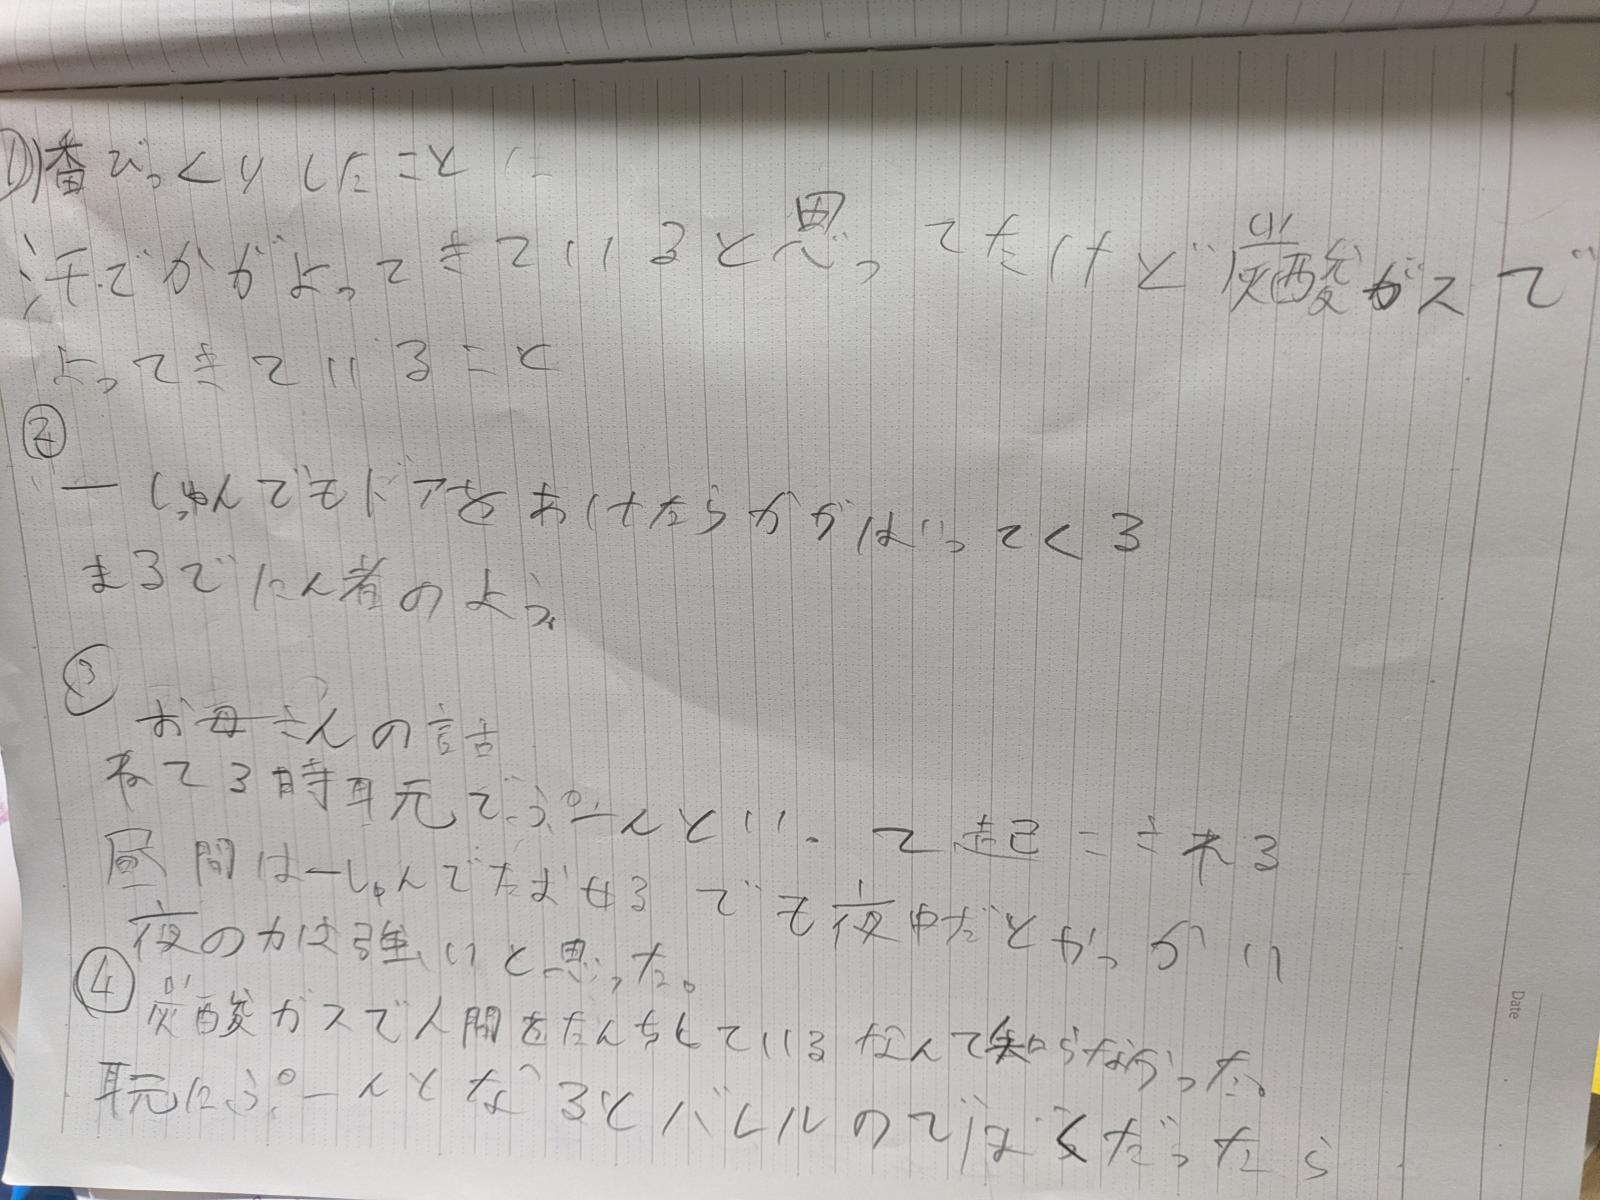 ①番びっくりしたこと
汗でかがよってきていると思ってたけど炭酸ガスで
よってきていること
②
一しゅんでもドアをあけたらかがはいってくる
まるでにん者のよう
③
お母さんの話
ねて3時耳元でぷーんといって起こされる
昼間は一しゅんでたおせるでも夜中だとやっかい
夜のかは強いと思った。
④
炭酸ガスで人間をたんちしているなんて知らなかった。
耳元にぷーんとなるとバレルのでぼくだったら
Date